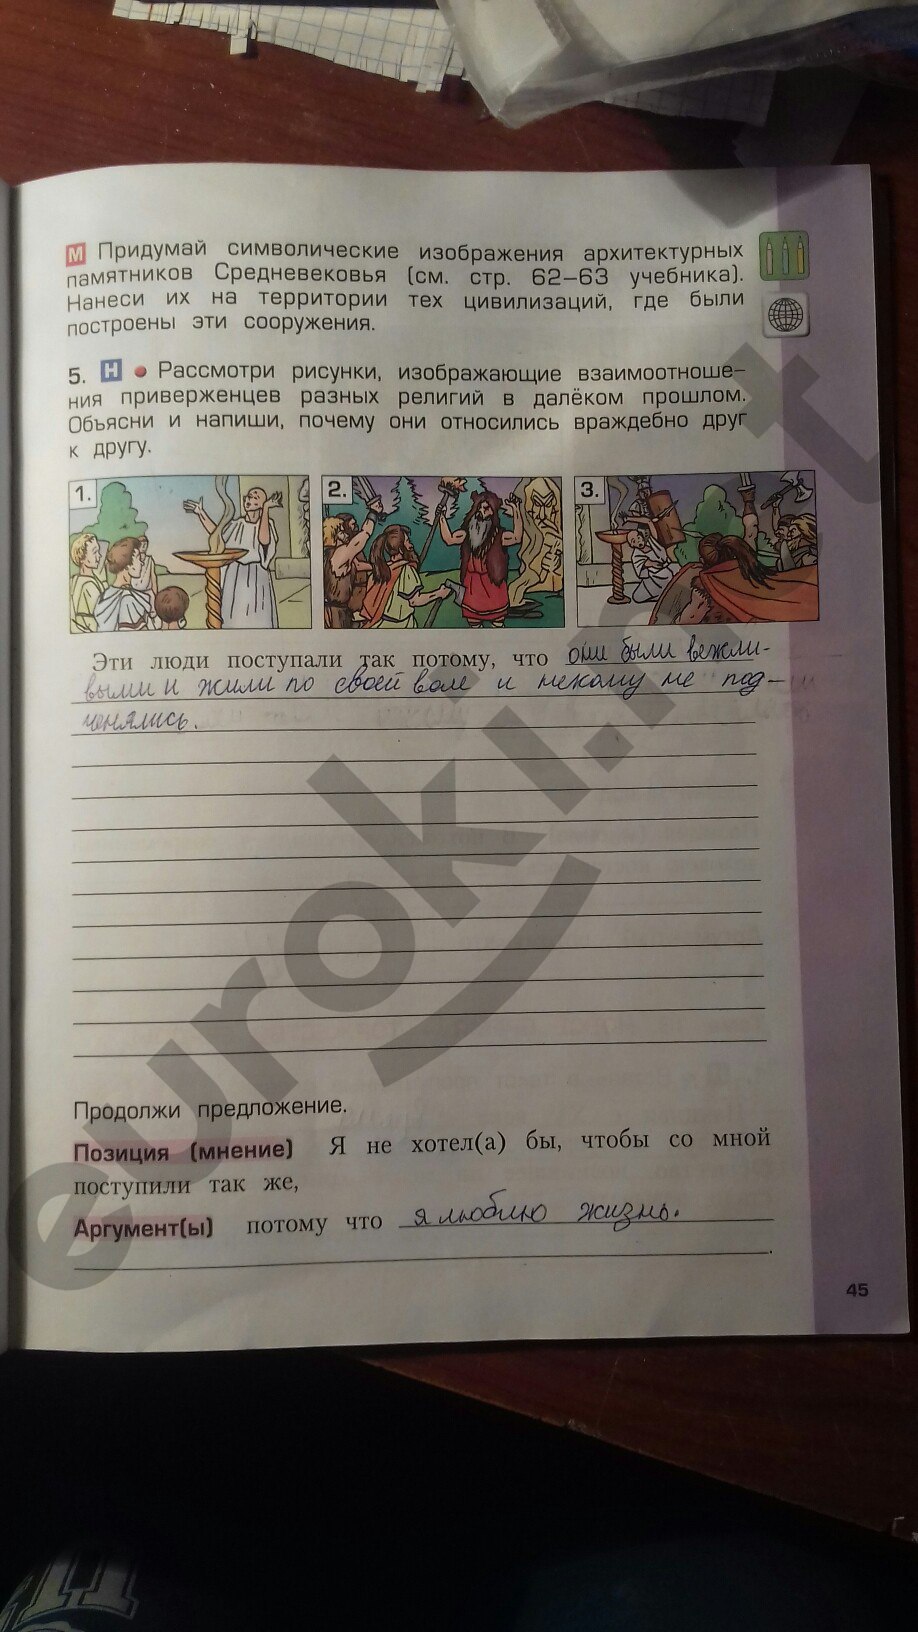 М Придумай символические изображения архитектурных
памятников Средневековья (см. стр. 62–63 учебника).
Нанеси их на территории тех цивилизаций, где были
построены эти сооружения.
5. Н • Рассмотри рисунки, изображающие взаимоотноше-
ния приверженцев разных религий в далёком прошлом.
Объясни и напиши, почему они относились враждебно друг
к другу.
1. 2. 3.
Эти люди поступали так потому, что они были вежли-
выми и жили по своей воле и некому не под-
чонялись.
Продолжи предложение.
Позиция (мнение) Я не хотел(а) бы, чтобы со мной
поступили так же,
Аргумент(ы) потому что я люблю жизнь.
.
45
euroki.net